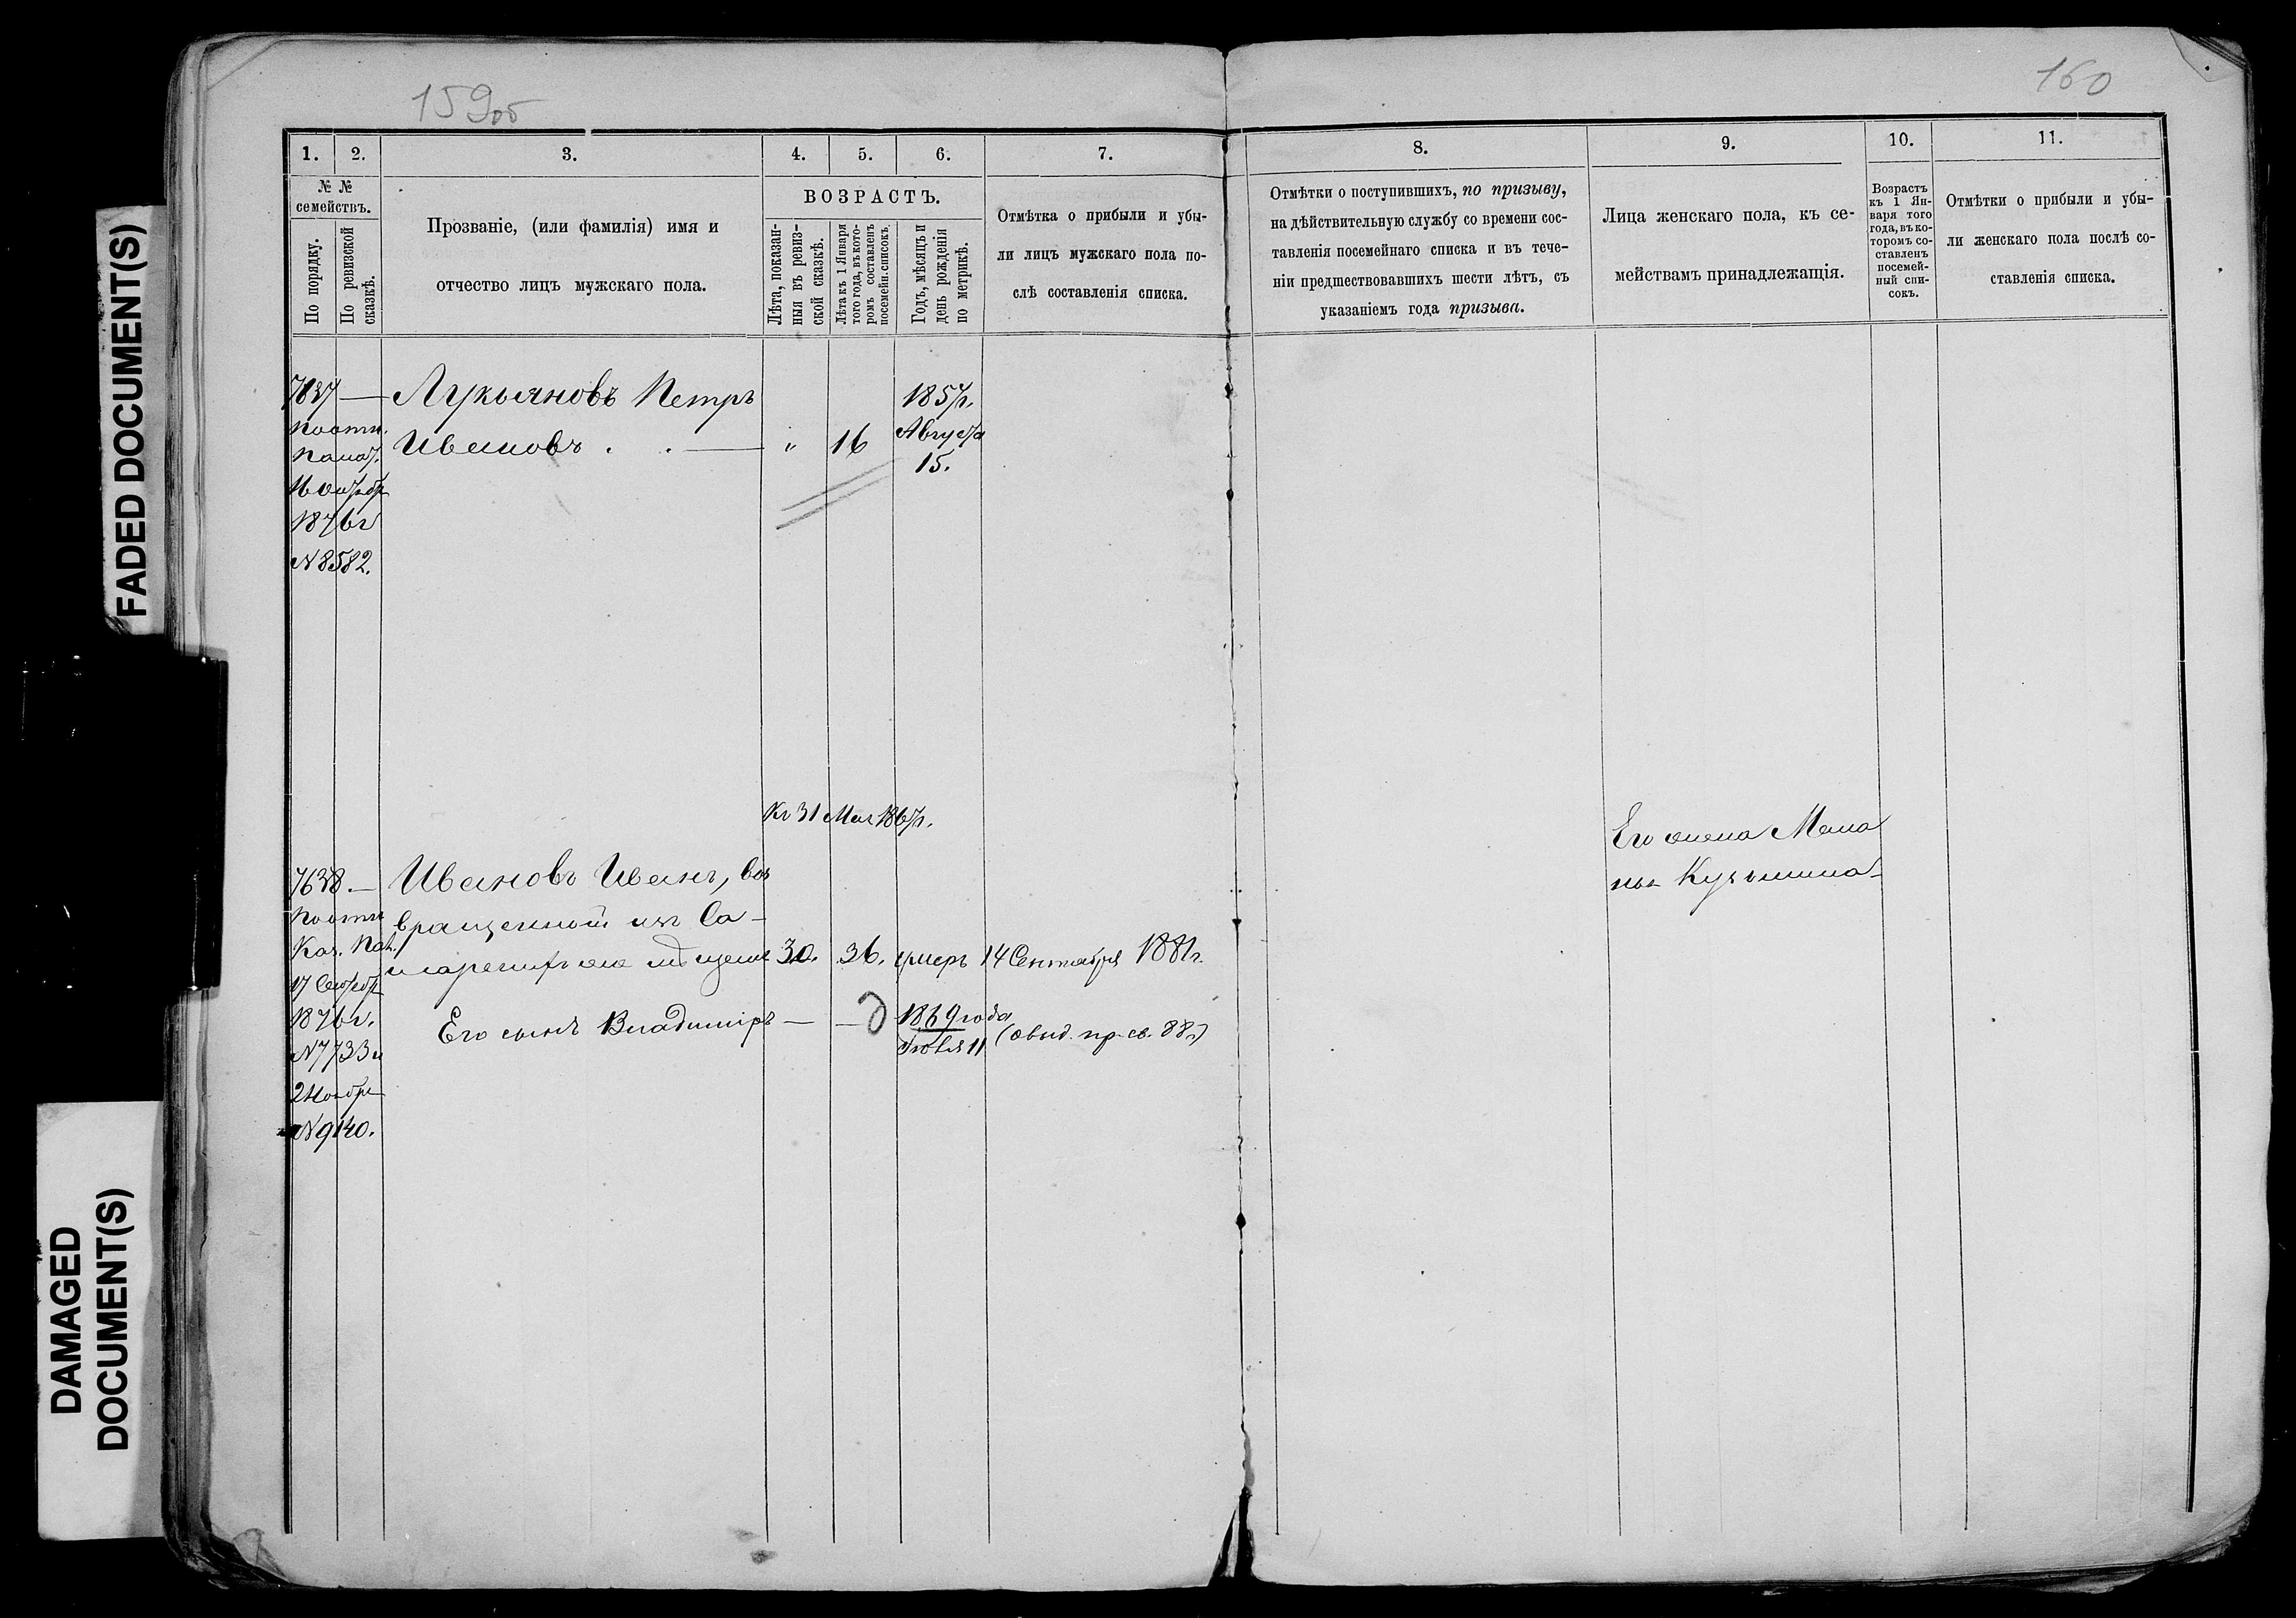 FADED DOCUMENT(S)
DAMAGED
DOCUMENT(S)
159об
160
1.
2.
3.
4.
5.
6.
7.
8.
9.
10.
11.
№ №
семействъ.
По порядку.
По ревизской
сказкѣ.
Прозваніе, (или фамилія) имя и
отчество лицъ мужскаго пола.
ВОЗРАСТЪ.
Лѣта, показан-
ныя въ ревиз-
ской сказкѣ.
Лѣта къ 1 Января
того года, въ кото-
ромъ составленъ
посемейн. списокъ.
Годъ, мѣсяцъ и
день рожденія
по метрикѣ.
Отмѣтка о прибыли и убы-
ли лицъ мужскаго пола по-
слѣ составленія списка.
Отмѣтки о поступившихъ, по призыву,
на дѣйствительную службу со времени сос-
тавленія посемейнаго списка и въ тече-
ніи предшествовавшихъ шести лѣтъ, съ
указаніемъ года призыва.
Лица женскаго пола, къ се-
мействамъ принадлежащія.
Возрастъ
къ 1 Ян-
варя того
года, въ ко-
торомъ со-
ставленъ
посемей-
ный спи-
сокъ.
Отмѣтки о прибыли и убы-
ли женскаго пола послѣ со-
ставленія списка.
7637 — Лукьяновъ Петръ
Ивановъ . . — „ 16
1857г.
Августа
15.
Постн.
Палат.
16 Октябр
1876г
№8582.
Къ 31 Мая 1867г.
7638. — Ивановъ Иванъ, воз
вращенный изъ Са-
мѣщане 30. 36. умеръ 14 Сентября 1881г.
Его сынъ Владиміръ — —
1869 года
Іюля 11
пр. св. 88г)
Постн
Каз. Пал.
17 Октябр
1876г.
№7733 и
2 Ноябр
№9140.
Его жена
Кузьмина